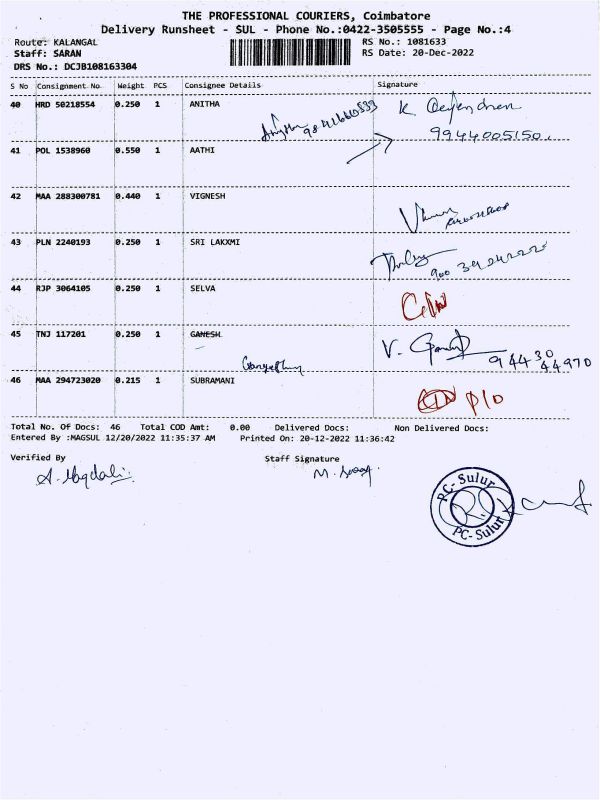 THE PROFESSIONAL COURIERS, Coimbatore
Delivery Runsheet - SUL - Phone No.:0422-3505555 - Page No.:4
Route: KALANGAL RS No.: 1081633
Staff: SARAN RS Date: 20-Dec-2022
DRS No.: DCJB108163304
S No Consignment No Weight PCS Consignee Details Signature
40 HRD 50218554 0.250 1 ANITHA
9944005150
41 POL 1538960 0.550 1 AATHI
42 MAA 288300781 0.440 1 VIGNESH
43 PLN 2240193 0.250 1 SRI LAKXMI
44 RJP 3064105 0.250 1 SELVA
45 TNJ 117201 0.250 1 GANESH V.
94430
44970
46 MAA 294723020 0.215 1 SUBRAMANI P/O
Total No. Of Docs: 46 Total COD Amt: 0.00 Delivered Docs: Non Delivered Docs:
Entered By :MAGSUL 12/20/2022 11:35:37 AM Printed On: 20-12-2022 11:36:42
Verified By Staff Signature
PC-Sulur
PC-Sulur